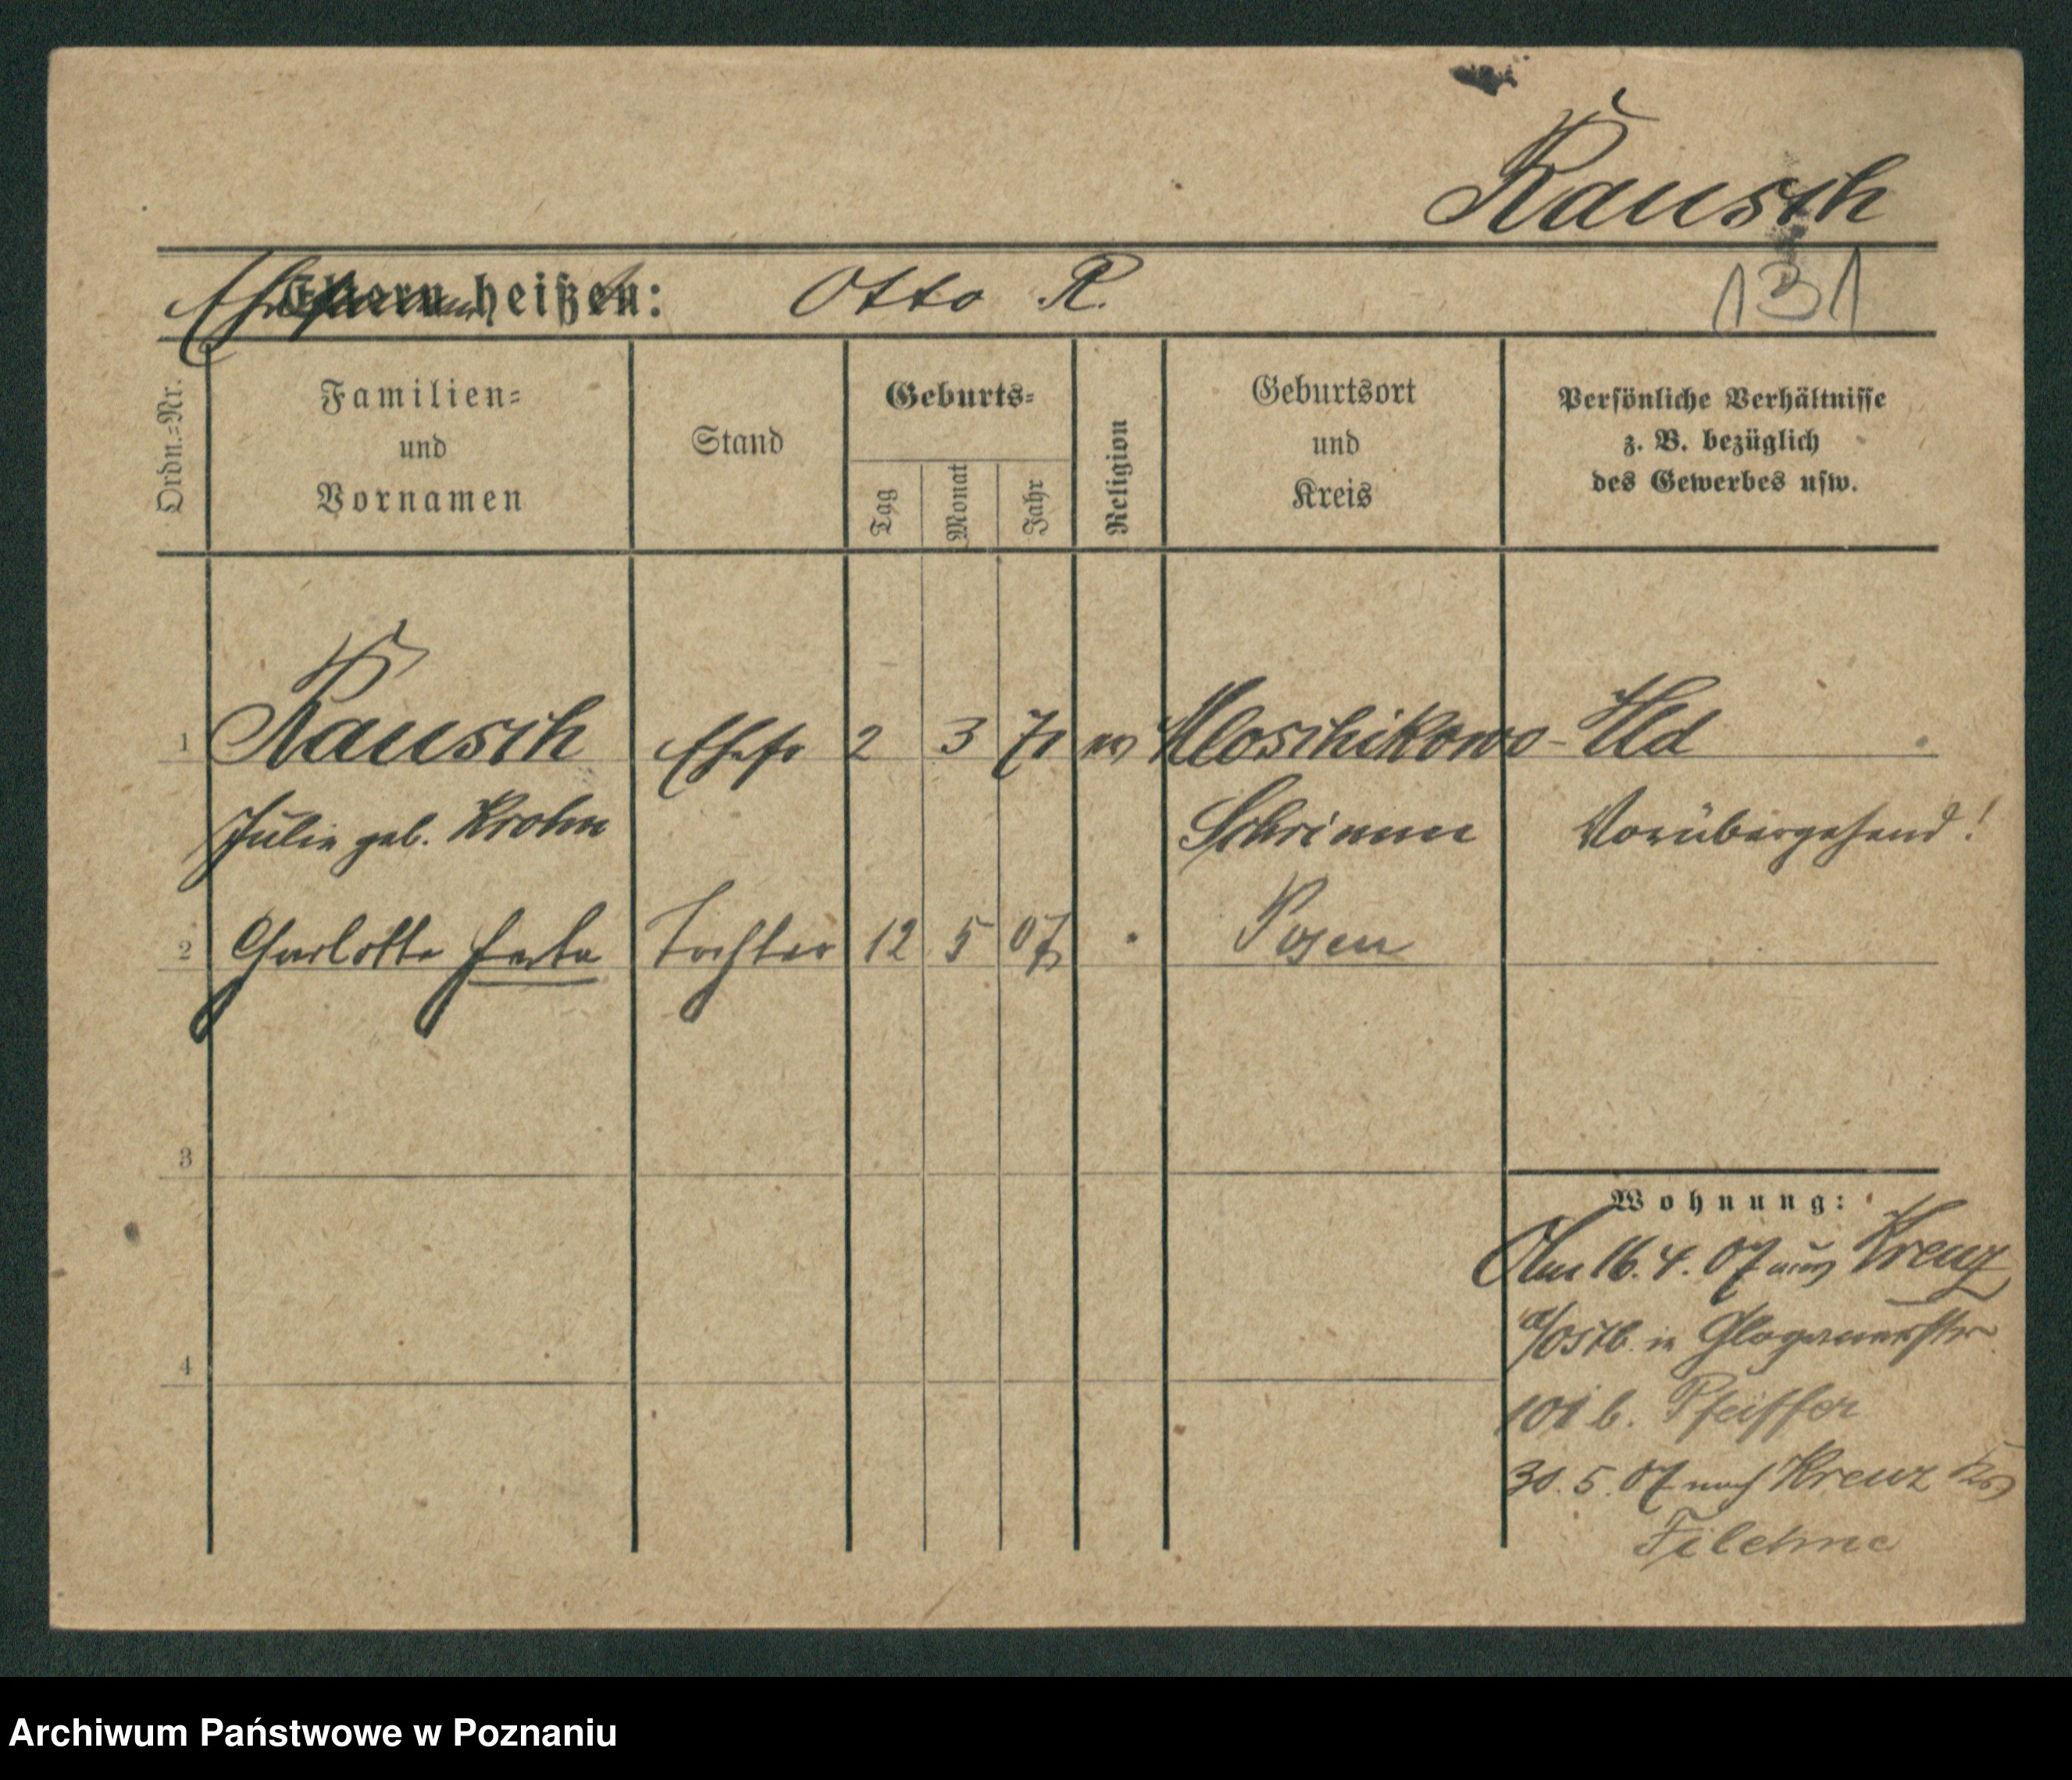 Rausch
Ehemann heißen: Otto R.
131
Ordn.=Nr.
Familien=
und
Vornamen
Stand
Geburts=
Tag
Monat
Jahr
Religion
Geburtsort
und
Kreis
Persönliche Verhältnisse
z. B. bezüglich
des Gewerbes usw.
1 Rausch Ehefr 2 3 71 ev Moschikowo -
Julie geb. Krohn Schrimm Vorübergehend!
2 Charlotte Herta Tochter 12 5 07 Posen
3
4
Wohnung:
Am 16. 4. 07 aus Kreuz
a/Ostb. in Glogauerstr
101 b. Pfeiffer
30. 5. 07 nach Kreuz Krs
Filehne
Archiwum Państwowe w Poznaniu